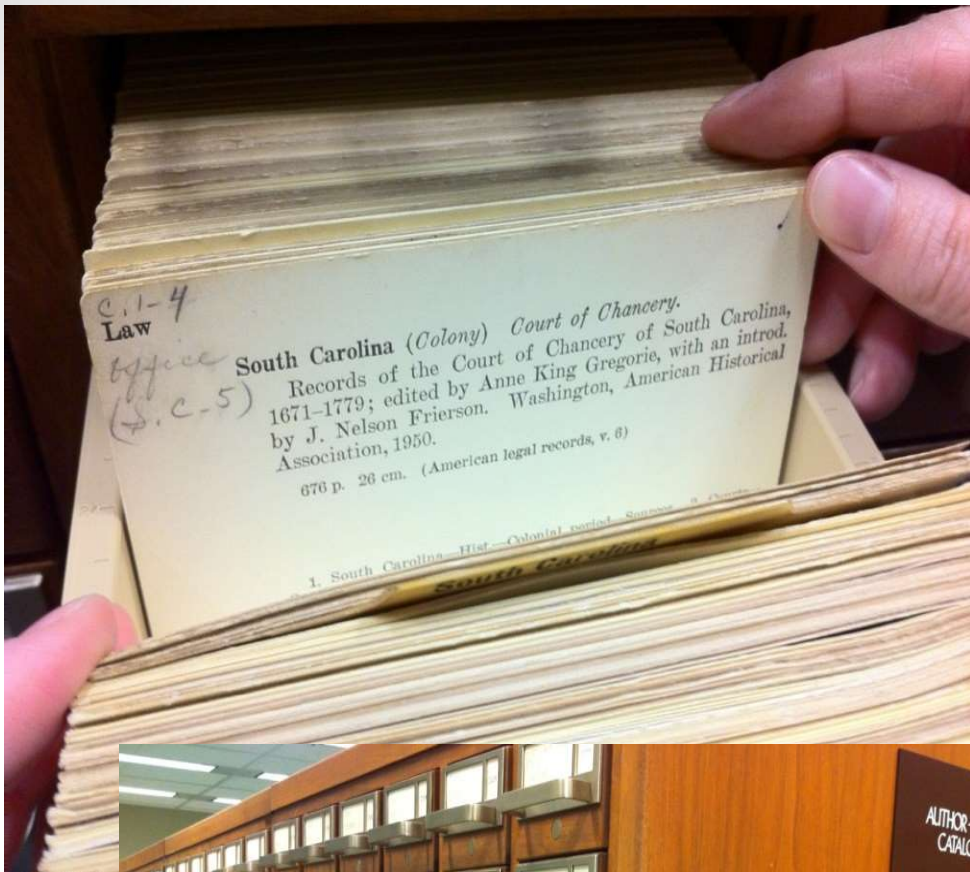 C.1-4
Law
Office
(S.C-5)
South Carolina (Colony) Court of Chancery.
Records of the Court of Chancery of South Carolina,
1671–1779; edited by Anne King Gregorie, with an introd.
by J. Nelson Frierson. Washington, American Historical
Association, 1950.
676 p. 26 cm. (American legal records, v. 6)
1. South Carolina—Hist.—Colonial period—Sources. 2. Courts
South Carolina
AUTHOR-